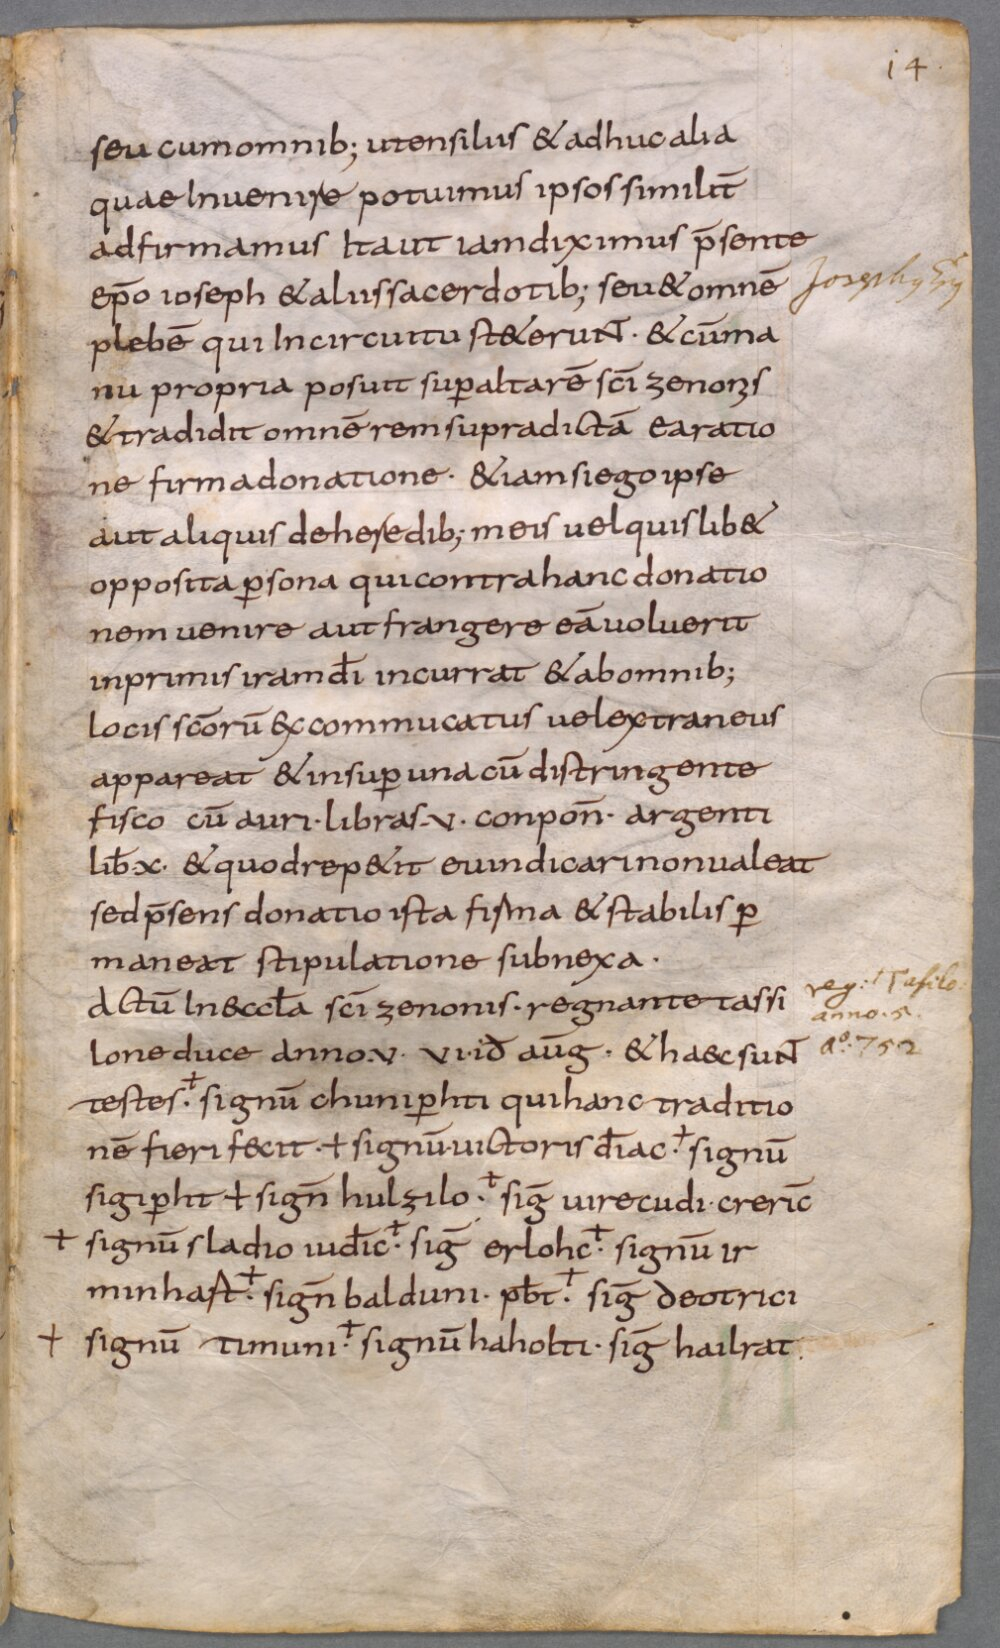 14.
seu cum omnib; utensiliis & adhuc alia
quae Inuenire potuimus ipsos similit̄
adfirmamus Ita ut iam diximus p̄sente
ep̄o ioseph & aliis sacerdotib; seu & omnē
plebē qui In circuitu st&erunt. & cū ma
nu propria posuit sup altarē sc̄i zenonis
& tradidit omnē rem supradictā ea ratio
ne firma donatione. & iam si ego ipse
aut aliquis de heredib; meis uel quislib&
opposita psona qui contra hanc donatio
nem uenire aut frangere eā uoluerit
inprimis iram d̄i incurrat & ab omnib;
locis sc̄orū excommucatus uel extraneus
appareat & insup una cū distringente
fisco cū auri. libras. v. conpon̄. argenti
lib̄. x. & quod rep&it euindicari non ualeat
sed p̄sens donatio ista firma & stabilis p
maneat stipulatione subnexa.
Actū In eccl̄a sc̄i zenonis. regnante tassi
lone duce anno. v. vi. id̄ aūg. & haec sunt
testes. + signū chunip̄hti qui hanc traditio
nē fieri fecit. + signū. uictoris d̄iac. + signū
sigip̄ht + sign̄ hulzilo. + siḡ uirecudi. creric̄
+ signū sladio iud̄ic. + siḡ erlohc. + signū ir
minhast. + sign̄ balduni. pb̄t. + siḡ deotrici
+ signū timuni. + signū haholti. siḡ hailrat.
reg: Tasilo.
anno. 5.
aº: 752